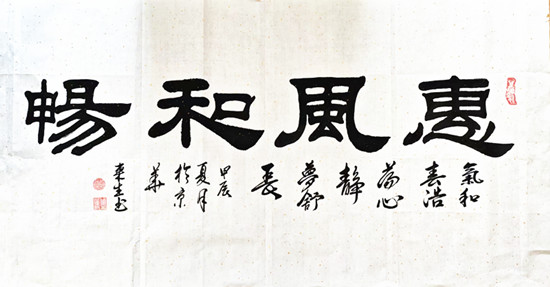 惠風和暢
氣和
春浩
蕩心
靜
夢舒
長
甲辰
夏月
於京
華
生书